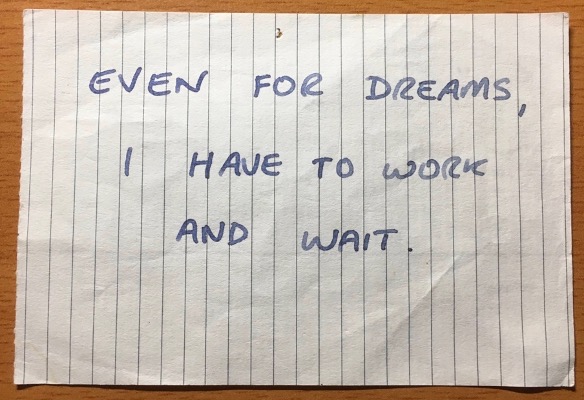 EVEN FOR DREAMS,
I HAVE TO WORK
AND WAIT.